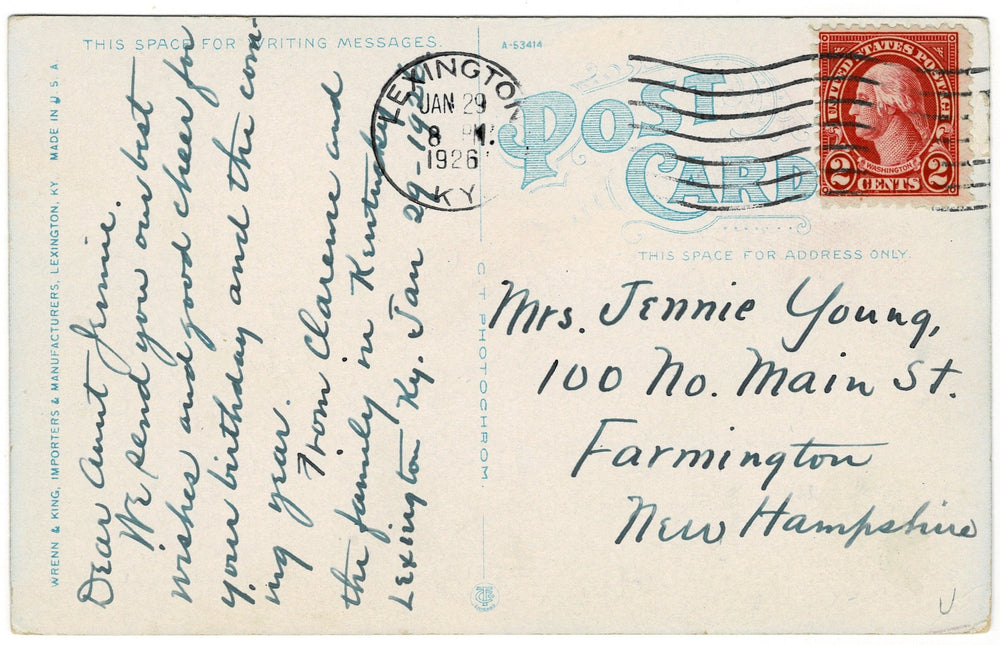 THIS SPACE FOR WRITING MESSAGES.
A-53414
WRENN & KING, IMPORTERS & MANUFACTURERS, LEXINGTON, KY. MADE IN U.S.A
Dear Aunt Jennie.
We send you our best
wishes and good cheer for
your birthday and the com-
ing year.
From Clarence and
the family in Kentucky
Lexington Ky. Jan 29-1926
C T PHOTOCHROM
LEXINGTON
JAN 29
8 PM
1926
KY.
POST
CARD
UNITED STATES POSTAGE
WASHINGTON
2 CENTS 2
THIS SPACE FOR ADDRESS ONLY.
Mrs. Jennie Young,
100 No. Main St.
Farmington
New Hampshire